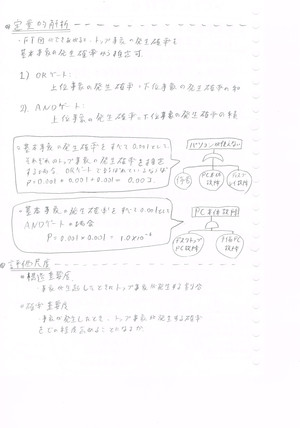 定量的解析
・FT図ができれば、トップ事象の発生確率を
基本事象の発生確率から推定可
1) ORゲート：
上位事象の発生確率=下位事象の発生確率の和
2) ANDゲート：
上位事象の発生確率=下位事象の発生確率の積
基本事象の発生確率をすべて0.001として
トップ事象の発生確率を推定
すると ORゲートで
P=0.001+0.001+0.001=0.003
パソコンが使えない
停電
PC本体故障
基本事象の発生確率をすべて0.001とし
ANDゲートの場合
P=0.001×0.001=1.0×10⁻⁶
PC本体故障
デスクトップPC故障
評価尺度
構造重要度
トップ事象が発生する割合
確率重要度
事象が発生したとき、トップ事象が発生する確率
をどの程度高めることになるか